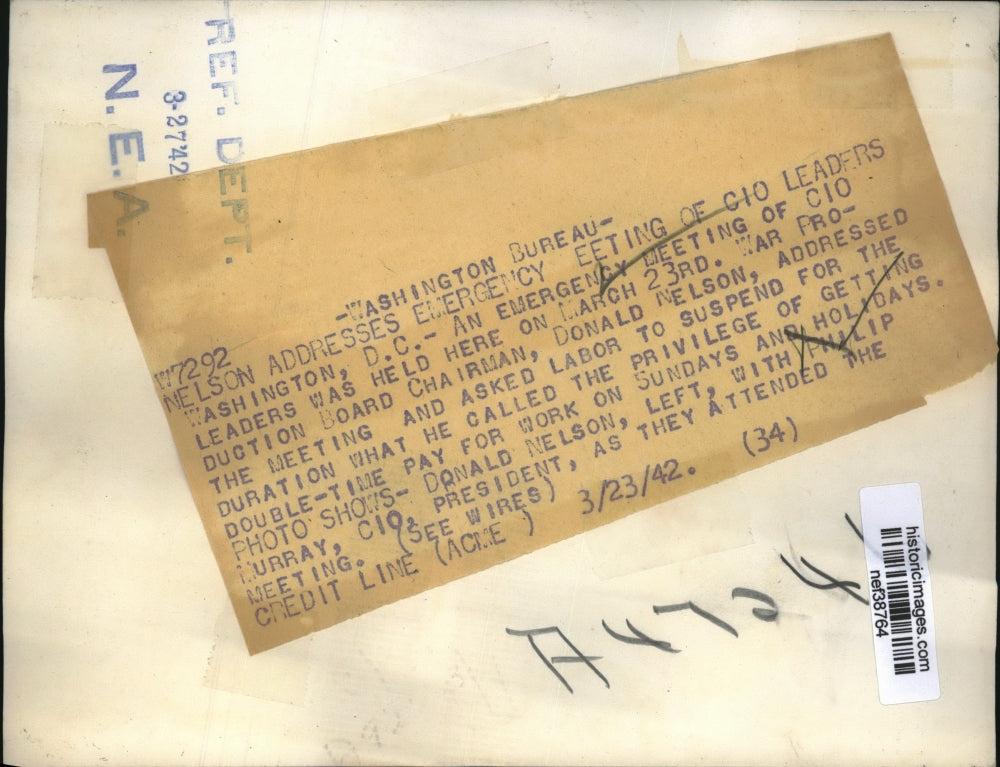 REF. DEPT.
3-2742
N.E.A.
-WASHINGTON BUREAU-
W7292
NELSON ADDRESSES EMERGENCY EETING OF CIO LEADERS
WASHINGTON, D.C.- AN EMERGENCY MEETING OF CIO
LEADERS WAS HELD HERE ON MARCH 23RD. WAR PRO-
DUCTION BOARD CHAIRMAN, DONALD NELSON, ADDRESSED
THE MEETING AND ASKED LABOR TO SUSPEND FOR THE
DURATION WHAT HE CALLED THE PRIVILEGE OF GETTING
DOUBLE-TIME PAY FOR WORK ON SUNDAYS AND HOLIDAYS.
PHOTO SHOWS- DONALD NELSON, LEFT, WITH PHILIP
MURRAY, CIO, PRESIDENT, AS THEY ATTENDED THE
MEETING. (SEE WIRES)
CREDIT LINE (ACME ) 3/23/42. (34)
historicimages.com
nef38764